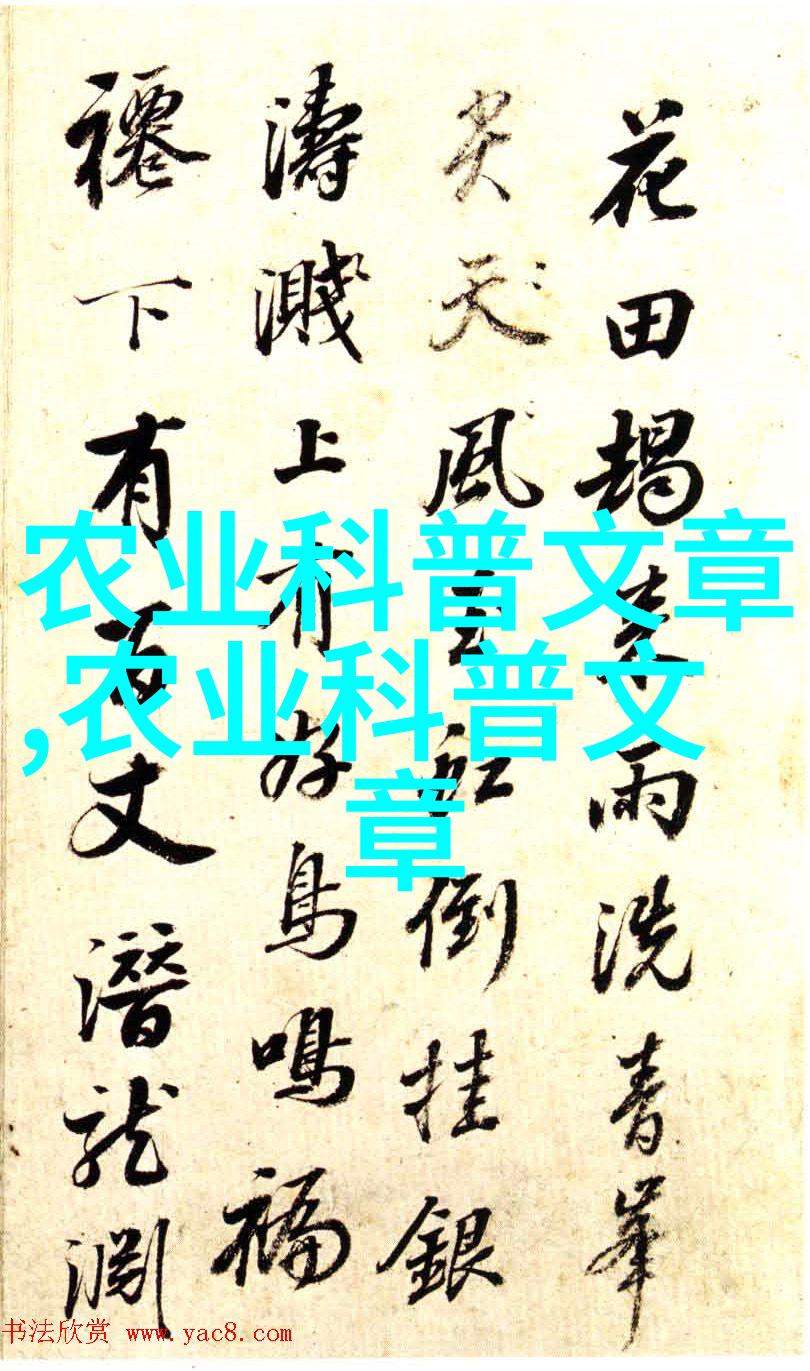 花田朅来雨洗青峯
尖天風倒挂銀
濤濺上有好鳥鳴福
下有百丈潛龍淵
农业科普文章
,农业科普文
章
书法欣赏 www.yac8.com